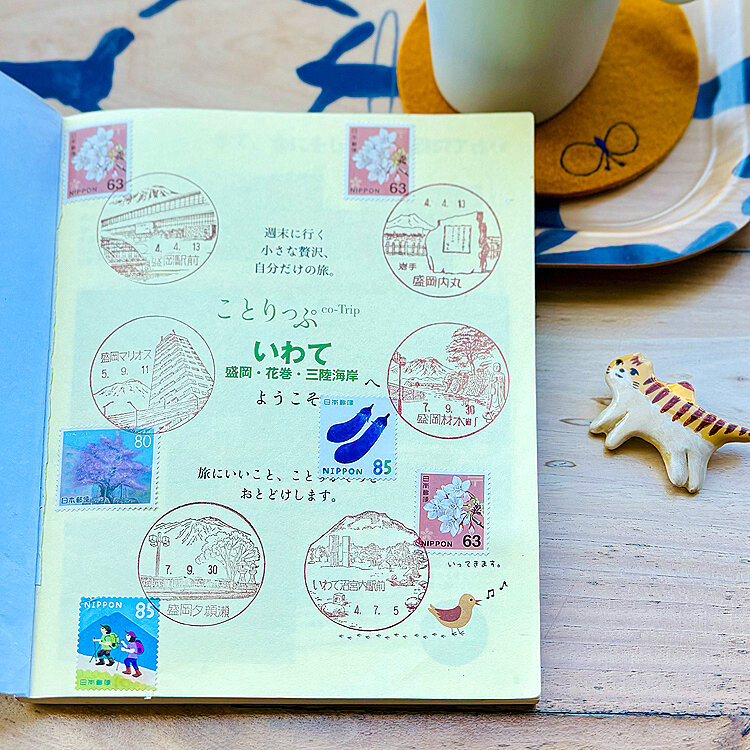 日本郵便
NIPPON 63
日本郵便
NIPPON 63
4.4.13
盛岡駅前
4.4.13
岩手
盛岡内丸
週末に行く
小さな贅沢、
自分だけの旅。
ことりっぷ co-Trip
いわて
盛岡・花巻・三陸海岸
へ
ようこそ
盛岡マリオス
5.9.11
7.9.30
盛岡材木町
日本郵便
NIPPON 85
80
日本郵便
旅にいいこと、ことり
おとどけします。
日本郵便
NIPPON 63
いってきます。
7.9.30
盛岡夕顔瀬
いわて沼宮内駅前
4.7.5
NIPPON 85
日本郵便